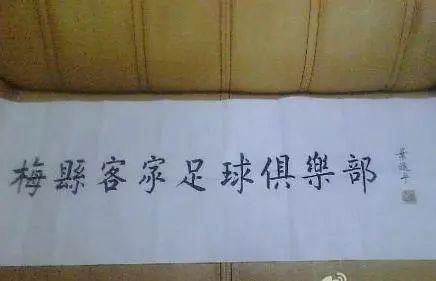 梅縣客家足球俱樂部